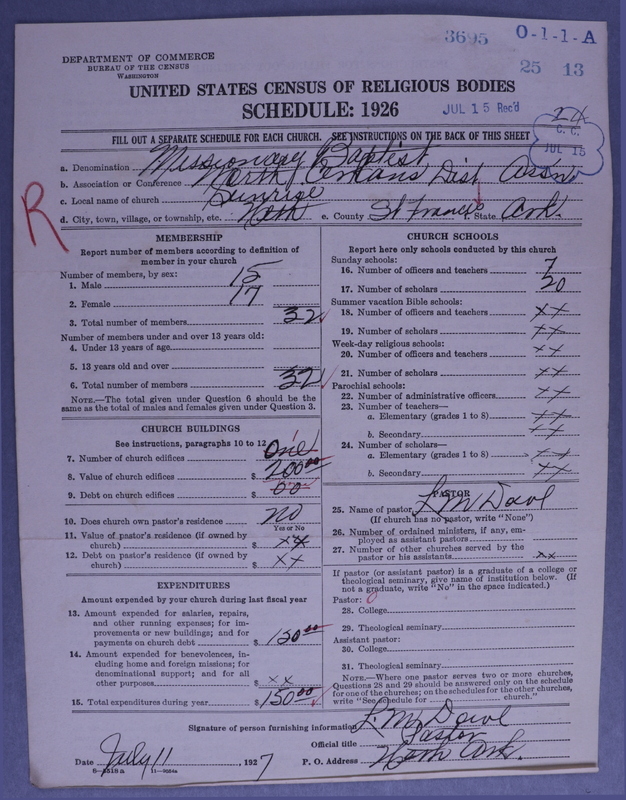 3695 O-1-1-A
DEPARTMENT OF COMMERCE
BUREAU OF THE CENSUS
WASHINGTON
25 13
UNITED STATES CENSUS OF RELIGIOUS BODIES
SCHEDULE: 1926
JUL 15 Rec'd
24
FILL OUT A SEPARATE SCHEDULE FOR EACH CHURCH. SEE INSTRUCTIONS ON THE BACK OF THIS SHEET
C. C.
JUL 15
R
a. Denomination Missionary Baptist
b. Association or Conference North Dist Assn
c. Local name of church Sunrise
d. City, town, village, or township, etc. e. County St Francis State Ark.
MEMBERSHIP
Report number of members according to definition of
member in your church
Number of members, by sex:
1. Male 15
2. Female 17
3. Total number of members 32
Number of members under and over 13 years old:
4. Under 13 years of age
5. 13 years old and over
6. Total number of members 32
NOTE.—The total given under Question 6 should be the
same as the total of males and females given under Question 3.
CHURCH BUILDINGS
See instructions, paragraphs 10 to 12
7. Number of church edifices One
8. Value of church edifices $ 200 00
9. Debt on church edifices $ 00
10. Does church own pastor's residence no
Yes or No
11. Value of pastor's residence (if owned by
church) $ xx
12. Debt on pastor's residence (if owned by
church) $ xx
EXPENDITURES
Amount expended by your church during last fiscal year
13. Amount expended for salaries, repairs,
and other running expenses; for im-
provements or new buildings; and for
payments on church debt $ 150 00
14. Amount expended for benevolences, in-
cluding home and foreign missions; for
denominational support; and for all
other purposes $ xx
15. Total expenditures during year $ 150 00
CHURCH SCHOOLS
Report here only schools conducted by this church
Sunday schools:
16. Number of officers and teachers 7
17. Number of scholars 20
Summer vacation Bible schools:
18. Number of officers and teachers xx
19. Number of scholars xx
Week-day religious schools:
20. Number of officers and teachers xx
21. Number of scholars xx
Parochial schools:
22. Number of administrative officers xx
23. Number of teachers—
a. Elementary (grades 1 to 8) xx
b. Secondary xx
24. Number of scholars—
a. Elementary (grades 1 to 8) xx
b. Secondary xx
PASTOR
25. Name of pastor L. M.
(If church has no pastor, write "None")
26. Number of ordained ministers, if any, em-
ployed as assistant pastors
27. Number of other churches served by the
pastor or his assistants xx
If pastor (or assistant pastor) is a graduate of a college or
theological seminary, give name of institution below. (If
not a graduate, write "No" in the space indicated.)
Pastor:
28. College
29. Theological seminary
Assistant pastor:
30. College
31. Theological seminary
NOTE.—Where one pastor serves two or more churches,
Questions 28 and 29 should be answered only on the schedule
for one of the churches; on the schedules for the other churches,
write "See schedule for church."
Signature of person furnishing information L. M.
Official title Pastor
Date July 11, 1927 P. O. Address Ark.
8-1518a 11-9684a